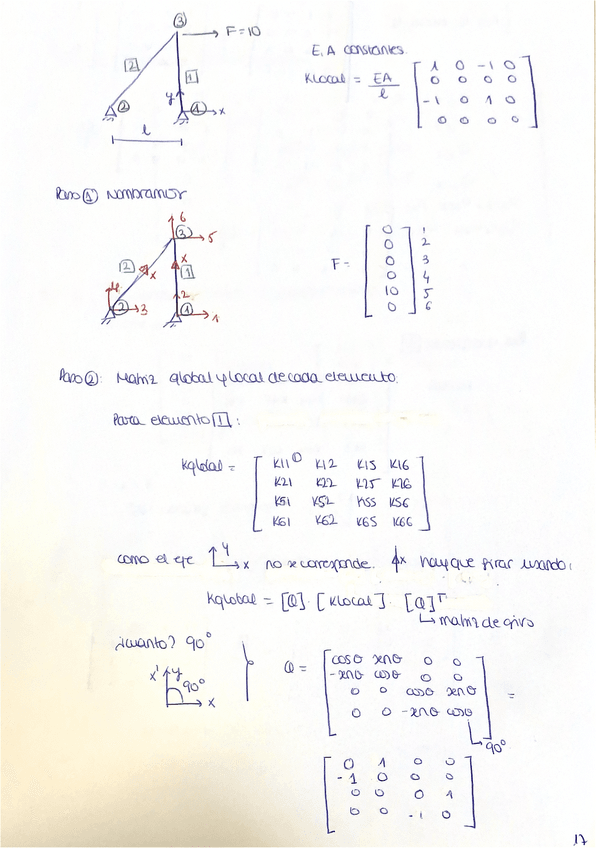 ③
F=10
2
1
y
②
① x
l
E, A constantes.
Klocal = EA/l [ 1 0 -1 0
0 0 0 0
-1 0 1 0
0 0 0 0 ]
Paso ① Nombramos
6
③ 5
2 x
x 1
4 2
② 3 ① 1
F = [ 0 1
0 2
0 3
0 4
10 5
0 ] 6
Paso ②: Matriz global y local de cada elemento.
Para elemento 1 :
Kglobal = [ K11① K12 K15 K16
K21 K22 K25 K26
K51 K52 K55 K56
K61 K62 K65 K66 ]
como el eje y x no se corresponde. x hay que girar usando:
Kglobal = [Q] · [Klocal] · [Q]T
matriz de giro
¿cuanto? 90°
x' y
90°
x
Q = [ cosθ senθ 0 0
-senθ cosθ 0 0
0 0 cosθ senθ
0 0 -senθ cosθ ] =
90°
[ 0 1 0 0
-1 0 0 0
0 0 0 1
0 0 -1 0 ]
17